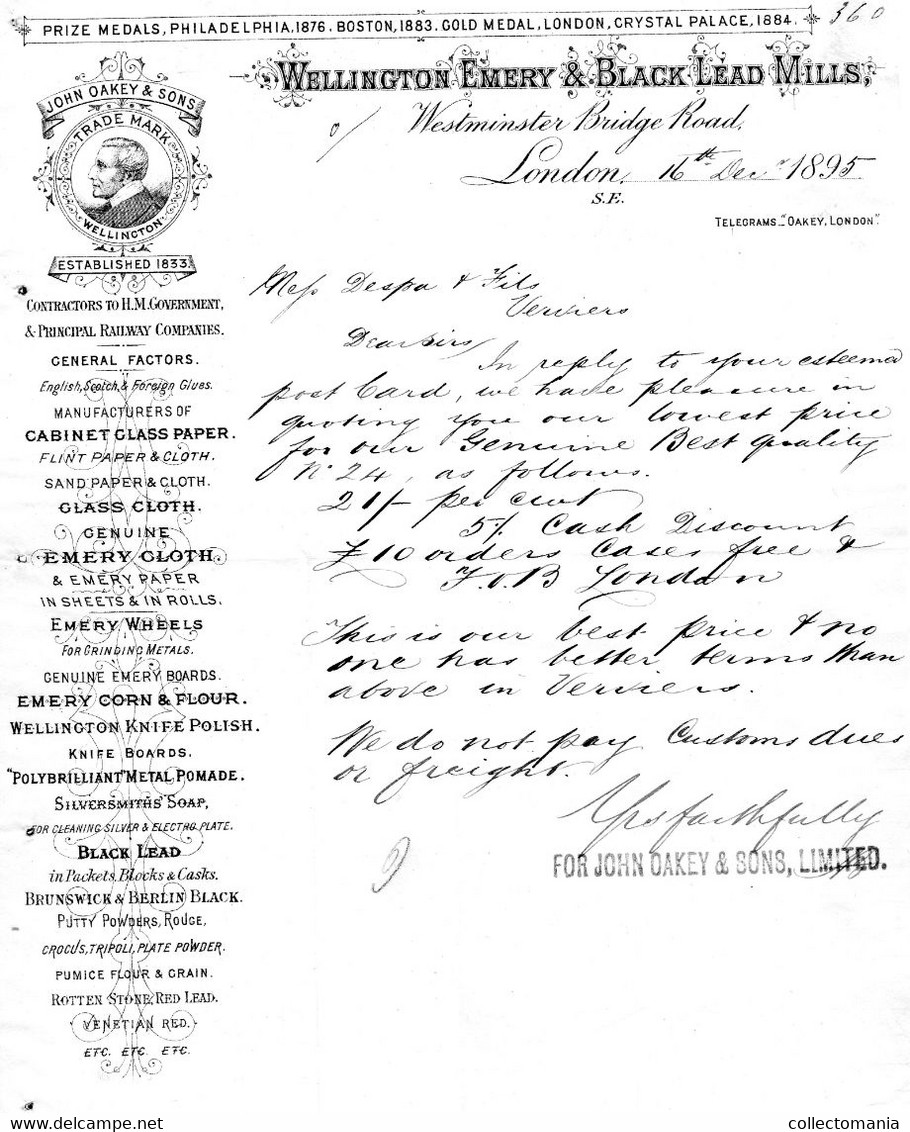 PRIZE MEDALS, PHILADELPHIA, 1876. BOSTON, 1883. GOLD MEDAL, LONDON, CRYSTAL PALACE, 1884.
360
WELLINGTON EMERY & BLACK LEAD MILLS,
Westminster Bridge Road,
London, 16th Decr 1895
S.E.
TELEGRAMS "OAKEY, LONDON".
JOHN OAKEY & SONS
TRADE MARK
WELLINGTON
ESTABLISHED 1833.
CONTRACTORS TO H.M. GOVERNMENT,
& PRINCIPAL RAILWAY COMPANIES.
GENERAL FACTORS.
English, Scotch, & Foreign Glues.
MANUFACTURERS OF
CABINET GLASS PAPER.
FLINT PAPER & CLOTH.
SAND PAPER & CLOTH.
GLASS CLOTH.
GENUINE
EMERY CLOTH
& EMERY PAPER
IN SHEETS & IN ROLLS.
EMERY WHEELS
FOR GRINDING METALS.
GENUINE EMERY BOARDS.
EMERY CORN & FLOUR.
WELLINGTON KNIFE POLISH.
KNIFE BOARDS.
"POLYBRILLIANT" METAL POMADE.
SILVERSMITHS' SOAP,
FOR CLEANING SILVER & ELECTRO PLATE.
BLACK LEAD
in Packets, Blocks & Casks.
BRUNSWICK & BERLIN BLACK.
PUTTY POWDERS, ROUGE,
CROCUS, TRIPOLI, PLATE POWDER.
PUMICE FLOUR & GRAIN.
ROTTEN STONE, RED LEAD.
VENETIAN RED.
ETC. ETC. ETC.
Mess Despa & Fils
Verviers
Dear Sirs
In reply to your esteemed
post Card, we have pleasure in
quoting you our lowest price
for our Genuine Best quality
No 24, as follows.
21/- per cwt
5% Cash Discount
£10 orders Cases free &
F.O.B London
This is our best price & no
one has better terms than
above in Verviers.
We do not pay Customs dues
or freight.
Yrs faithfully
FOR JOHN OAKEY & SONS, LIMITED.
collectomania